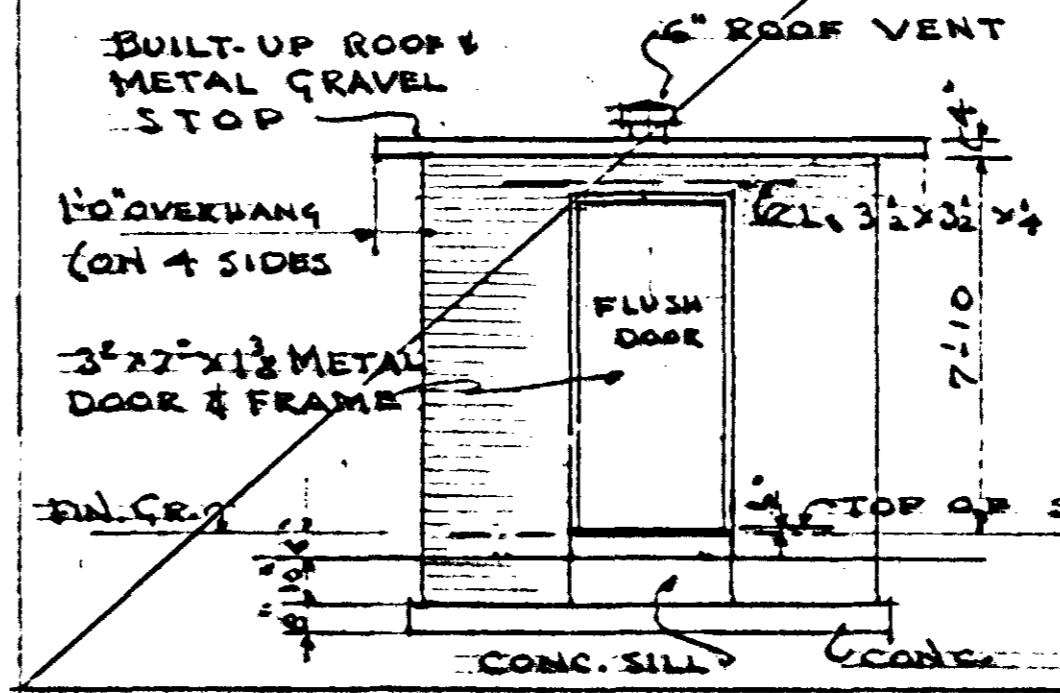 BUILT-UP ROOF &
METAL GRAVEL
STOP
6" ROOF VENT
4"
1'-0" OVERHANG
(ON 4 SIDES
3½ x 3½ x ¼
FLUSH
DOOR
7'-10
METAL
DOOR & FRAME
FIN. GR.
TOP OF S
8"
CONC. SILL
CONC.